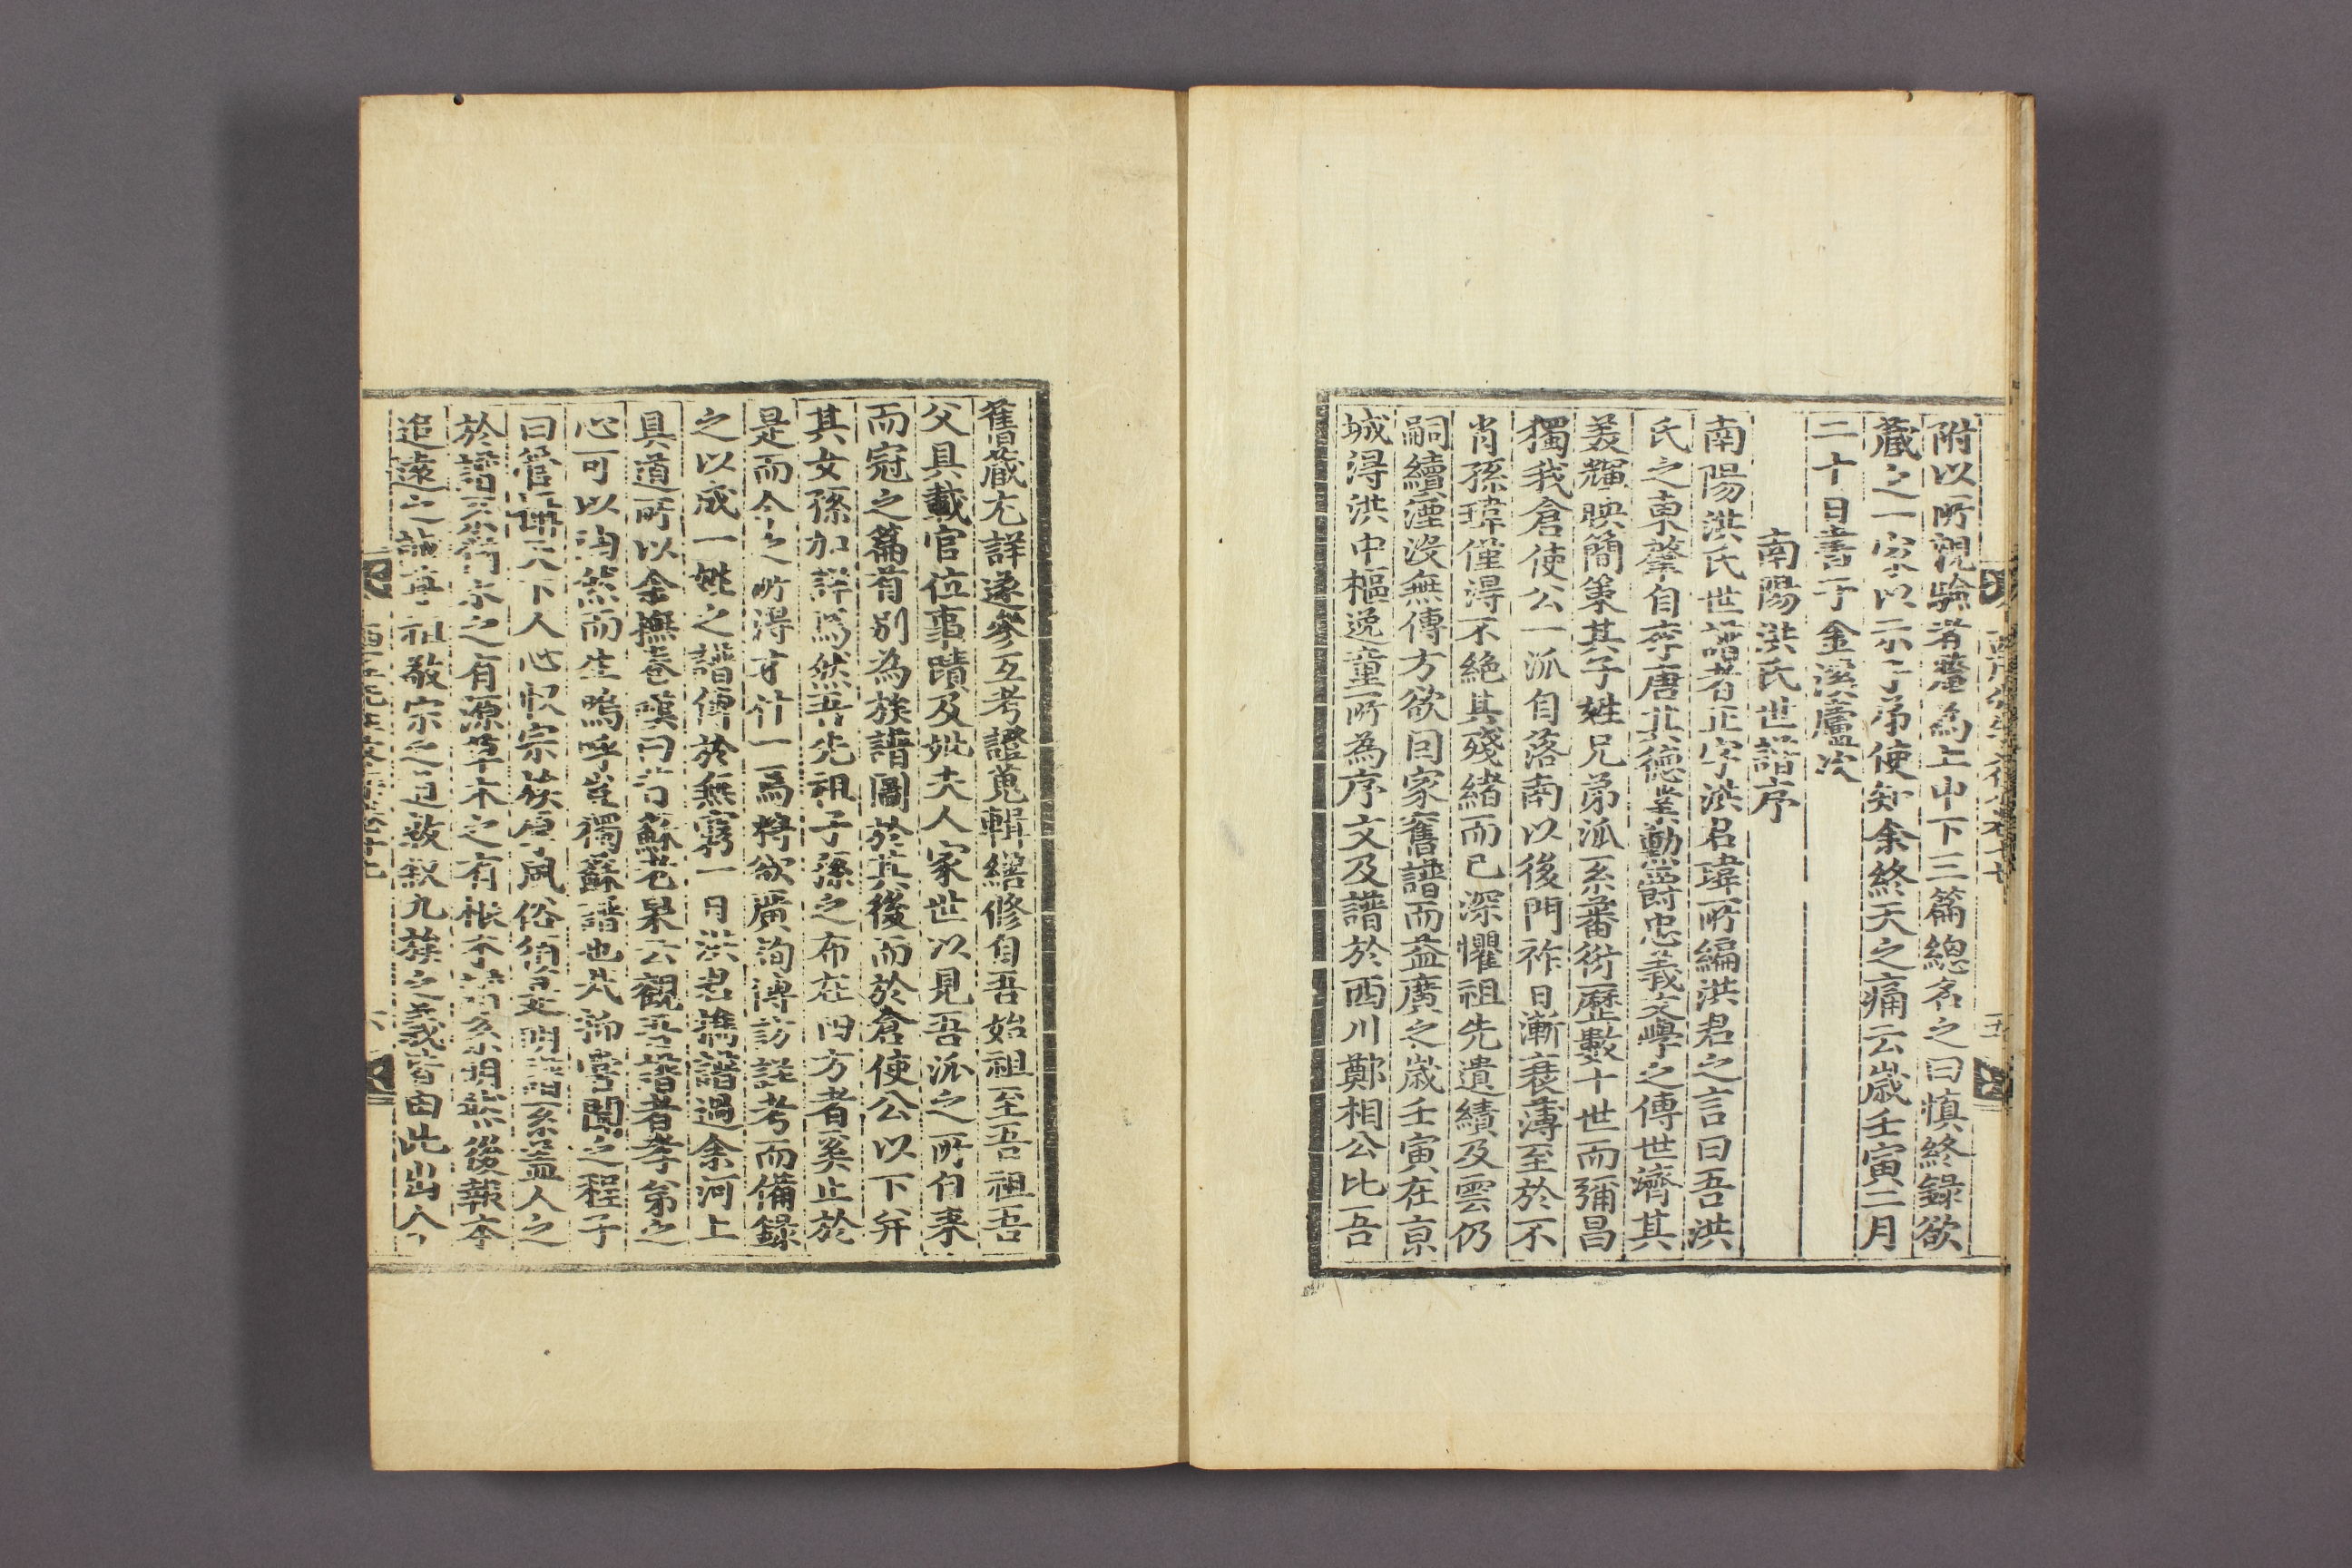 附以所視驗者釐為上中下三篇總名之曰愼終錄欲
藏之一家以示子弟使知余終天之痛云歲壬寅二月
二十日書于金溪廬次
南陽洪氏世譜序
南陽洪氏世譜者正字洪君瑋所編洪君之言曰吾洪
氏之東肇自李唐其德業勳爵忠義文學之傳世濟其
美輝映簡策其子姓兄弟派系蕃衍歷數十世而彌昌
獨我倉使公一派自落南以後門祚日漸衰薄至於不
肖孫瑋僅得不絶其殘緖而已深懼祖先遺績及雲仍
嗣續湮没無傳方欲因家舊譜而益廣之歲壬寅在京
城得洪中樞逸童所為序文及譜於西川鄭相公比吾
舊藏尤詳遂參互考證蒐輯繕修自吾始祖至吾祖吾
父具載官位事蹟及妣夫人家世以見吾派之所自来
而冠之篇首别為族譜圖於其後而於倉使公以下并
其女孫加詳焉然吾先祖子孫之布在四方者奚止於
是而今之所得才什一焉將欲廣詢博訪誌考而備録
之以成一姓之譜傳於無窮一日洪君攜譜過余河上
具道所以余撫卷嘆曰昔蘇老泉云觀吾譜者孝弟之
心可以油然而生嗚呼豈獨蘇譜也哉抑嘗聞之程子
曰管攝天下人心收宗族厚風俗須是明譜系盖人之
於譜系猶水之有源草木之有根本譜系明然後報本
追遠之誠尊祖敬宗之道敦叙九族之義皆由此出今